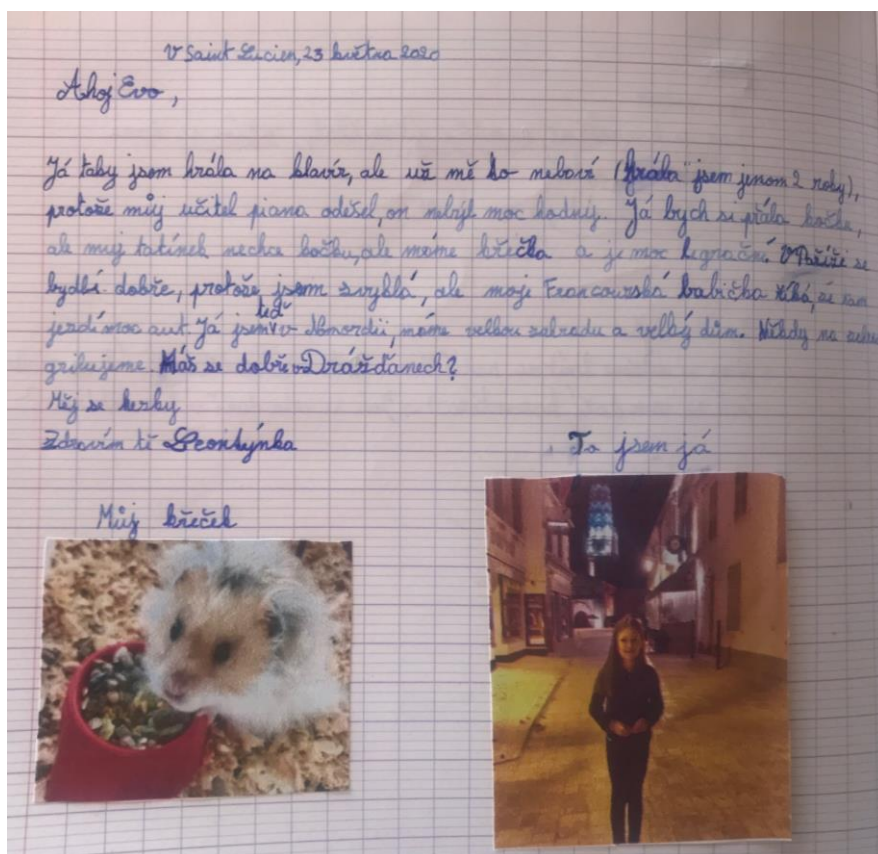 V Saint Lucien, 23 května 2020
Ahoj Evo,
Já taky jsem hrála na klavír, ale už mě to nebaví (hrála jsem jenom 2 roky),
protože můj učitel piana odešel, on nebyl moc hodnij. Já bych si přála kočku,
ale muj tatínek nechce kočku, ale máme křečka a je moc legrační. V Paříži se
bydlí dobře, protože jsem zvyklá, ale moje Francourská babička říká, že tam
jezdí moc aut. Já jsem teď v Normordii, máme velkou zahradu a velký dům. Někdy na
grilujeme. Máš se dobře v Drážďanech?
Měj se hezky
Zdravím tě Leontýnka
To jsem já
Můj křeček